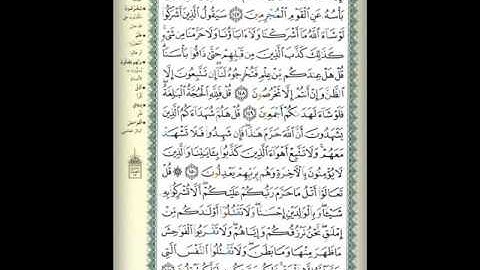 بَأْسُهُۥ عَنِ ٱلْقَوْمِ ٱلْمُجْرِمِينَ ١٤٧ سَيَقُولُ ٱلَّذِينَ أَشْرَكُوا۟
لَوْ شَآءَ ٱللَّهُ مَآ أَشْرَكْنَا وَلَآ ءَابَآؤُنَا وَلَا حَرَّمْنَا مِن شَىْءٍ
كَذَٰلِكَ كَذَّبَ ٱلَّذِينَ مِن قَبْلِهِمْ حَتَّىٰ ذَاقُوا۟ بَأْسَنَا
قُلْ هَلْ عِندَكُم مِّنْ عِلْمٍ فَتُخْرِجُوهُ لَنَآ إِن تَتَّبِعُونَ إِلَّا
ٱلظَّنَّ وَإِنْ أَنتُمْ إِلَّا تَخْرُصُونَ ١٤٨ قُلْ فَلِلَّهِ ٱلْحُجَّةُ ٱلْبَٰلِغَةُ
فَلَوْ شَآءَ لَهَدَىٰكُمْ أَجْمَعِينَ ١٤٩ قُلْ هَلُمَّ شُهَدَآءَكُمُ ٱلَّذِينَ
يَشْهَدُونَ أَنَّ ٱللَّهَ حَرَّمَ هَٰذَا فَإِن شَهِدُوا۟ فَلَا تَشْهَدْ
مَعَهُمْ وَلَا تَتَّبِعْ أَهْوَآءَ ٱلَّذِينَ كَذَّبُوا۟ بِـَٔايَٰتِنَا وَٱلَّذِينَ
لَا يُؤْمِنُونَ بِٱلْـَٔاخِرَةِ وَهُم بِرَبِّهِمْ يَعْدِلُونَ ١٥٠ قُلْ
تَعَالَوْا۟ أَتْلُ مَا حَرَّمَ رَبُّكُمْ عَلَيْكُمْ أَلَّا تُشْرِكُوا۟ بِهِۦ
شَيْـًٔا وَبِٱلْوَٰلِدَيْنِ إِحْسَٰنًا وَلَا تَقْتُلُوٓا۟ أَوْلَٰدَكُم مِّنْ
إِمْلَٰقٍ نَّحْنُ نَرْزُقُكُمْ وَإِيَّاهُمْ وَلَا تَقْرَبُوا۟ ٱلْفَوَٰحِشَ
مَا ظَهَرَ مِنْهَا وَمَا بَطَنَ وَلَا تَقْتُلُوا۟ ٱلنَّفْسَ ٱلَّتِى